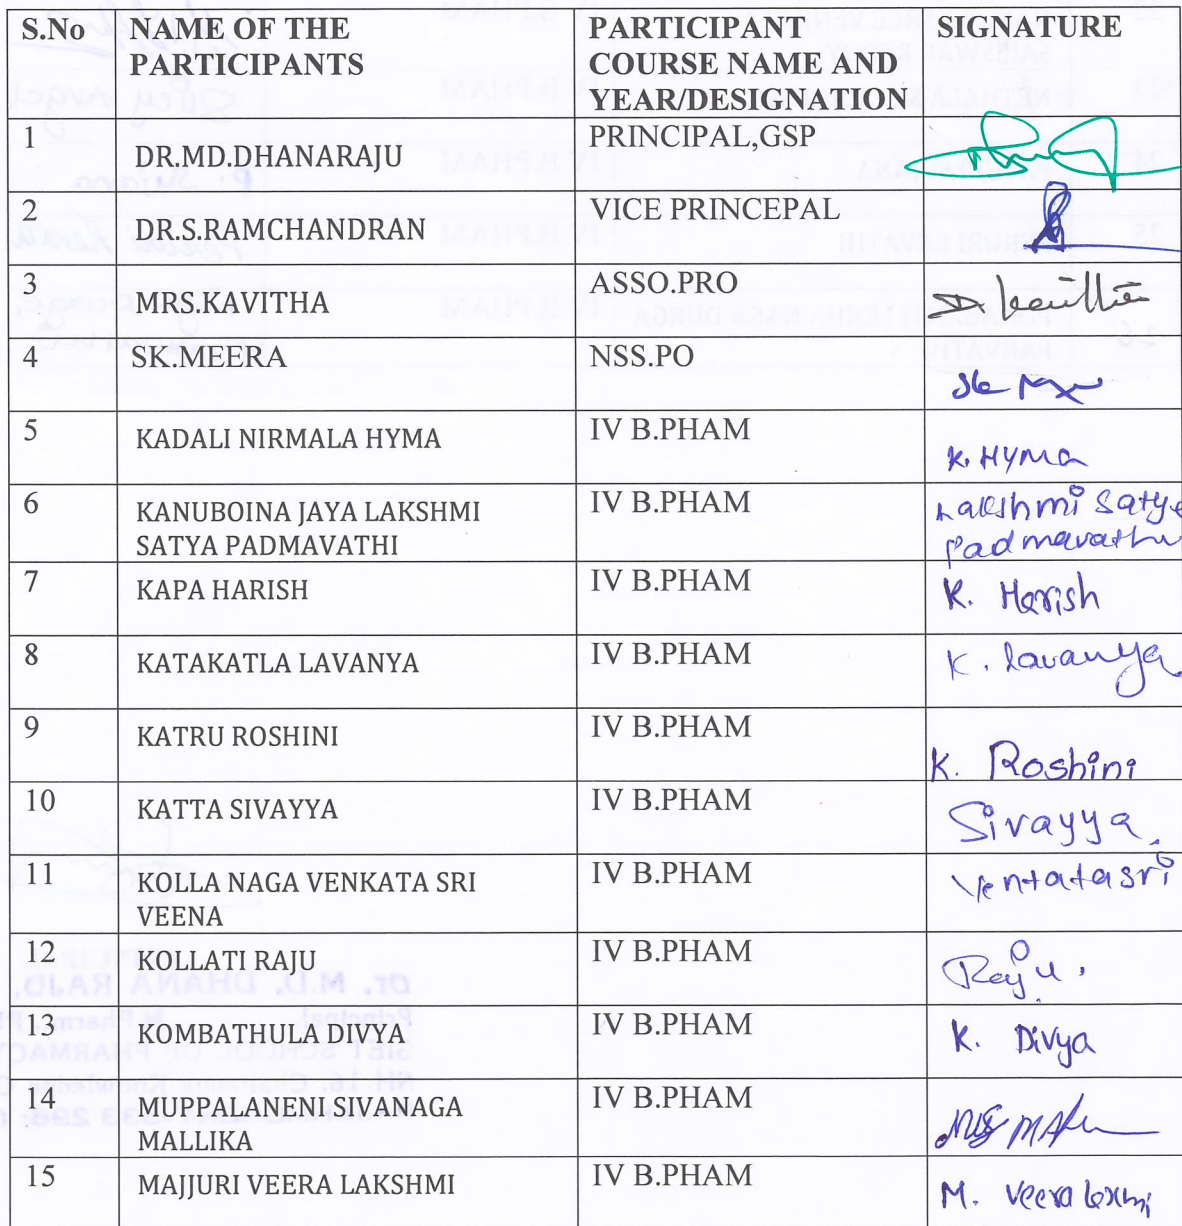 S.No NAME OF THE PARTICIPANTS PARTICIPANT COURSE NAME AND YEAR/DESIGNATION SIGNATURE
1 DR.MD.DHANARAJU PRINCIPAL,GSP
2 DR.S.RAMCHANDRAN VICE PRINCEPAL
3 MRS.KAVITHA ASSO.PRO D. Kavitha
4 SK.MEERA NSS.PO
5 KADALI NIRMALA HYMA IV B.PHAM K. HYMA
6 KANUBOINA JAYA LAKSHMI IV B.PHAM Lakshmi Satya
SATYA PADMAVATHI Padmavathi
7 KAPA HARISH IV B.PHAM K. Harish
8 KATAKATLA LAVANYA IV B.PHAM K. Lavanya
9 KATRU ROSHINI IV B.PHAM K. Roshini
10 KATTA SIVAYYA IV B.PHAM Sivayya.
11 KOLLA NAGA VENKATA SRI IV B.PHAM Ventatasri
VEENA
12 KOLLATI RAJU IV B.PHAM Raju.
13 KOMBATHULA DIVYA IV B.PHAM K. Divya
14 MUPPALANENI SIVANAGA IV B.PHAM
MALLIKA
15 MAJJURI VEERA LAKSHMI IV B.PHAM M. Veera laxmi